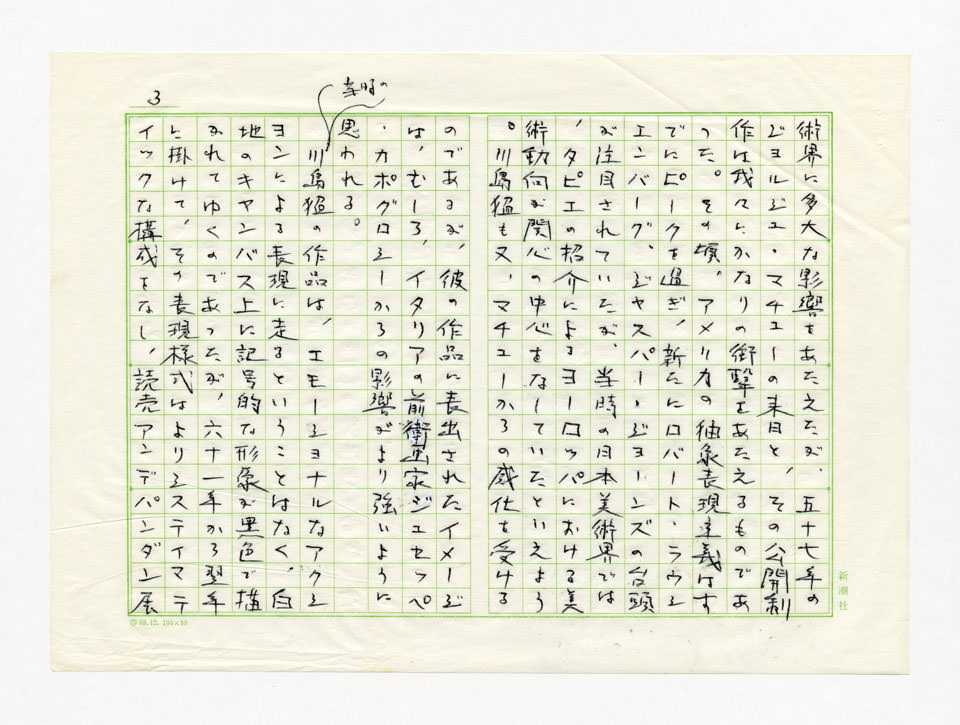 3
術界に多大な影響をあたえたが、五十七年の
ジョルジュ・マチューの来日と、その公開制
作は我々にかなりの衝撃をあたえるものであ
った。その頃、アメリカの抽象表現主義はす
でにピークを過ぎ、新たにロバート・ラウシ
ェンバーグ、ジャスパー・ジョーンズの台頭
が注目されていたが、当時の日本美術界では
、タピエの招介によるヨーロッパにおける美
術動向が関心の中心をなしていたといえよう
。川島猛も又、マチューからの感化を受ける
のであるが、彼の作品に表出されたイメージ
は、むしろ、イタリアの前衛画家ジュセッペ
・カポグロシーからの影響がより強いように
思われる。
当時の
川島猛の作品は、エモーショナルなアクシ
ョンによる表現に走るということはなく、白
地のキャンバス上に記号的な形象が黒色で描
かれてゆくのであったが、六十一年から翌年
に掛けて、その表現様式はよりシステイマテ
イックな構成をなし、読売アンデパンダン展
新潮社
59.12.100×80